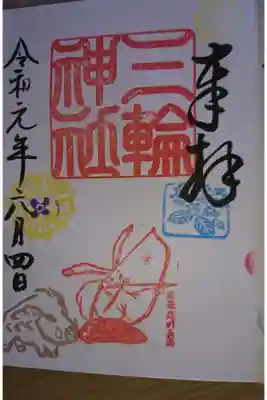 奉拝
三輪
神社
令和元年六月四日